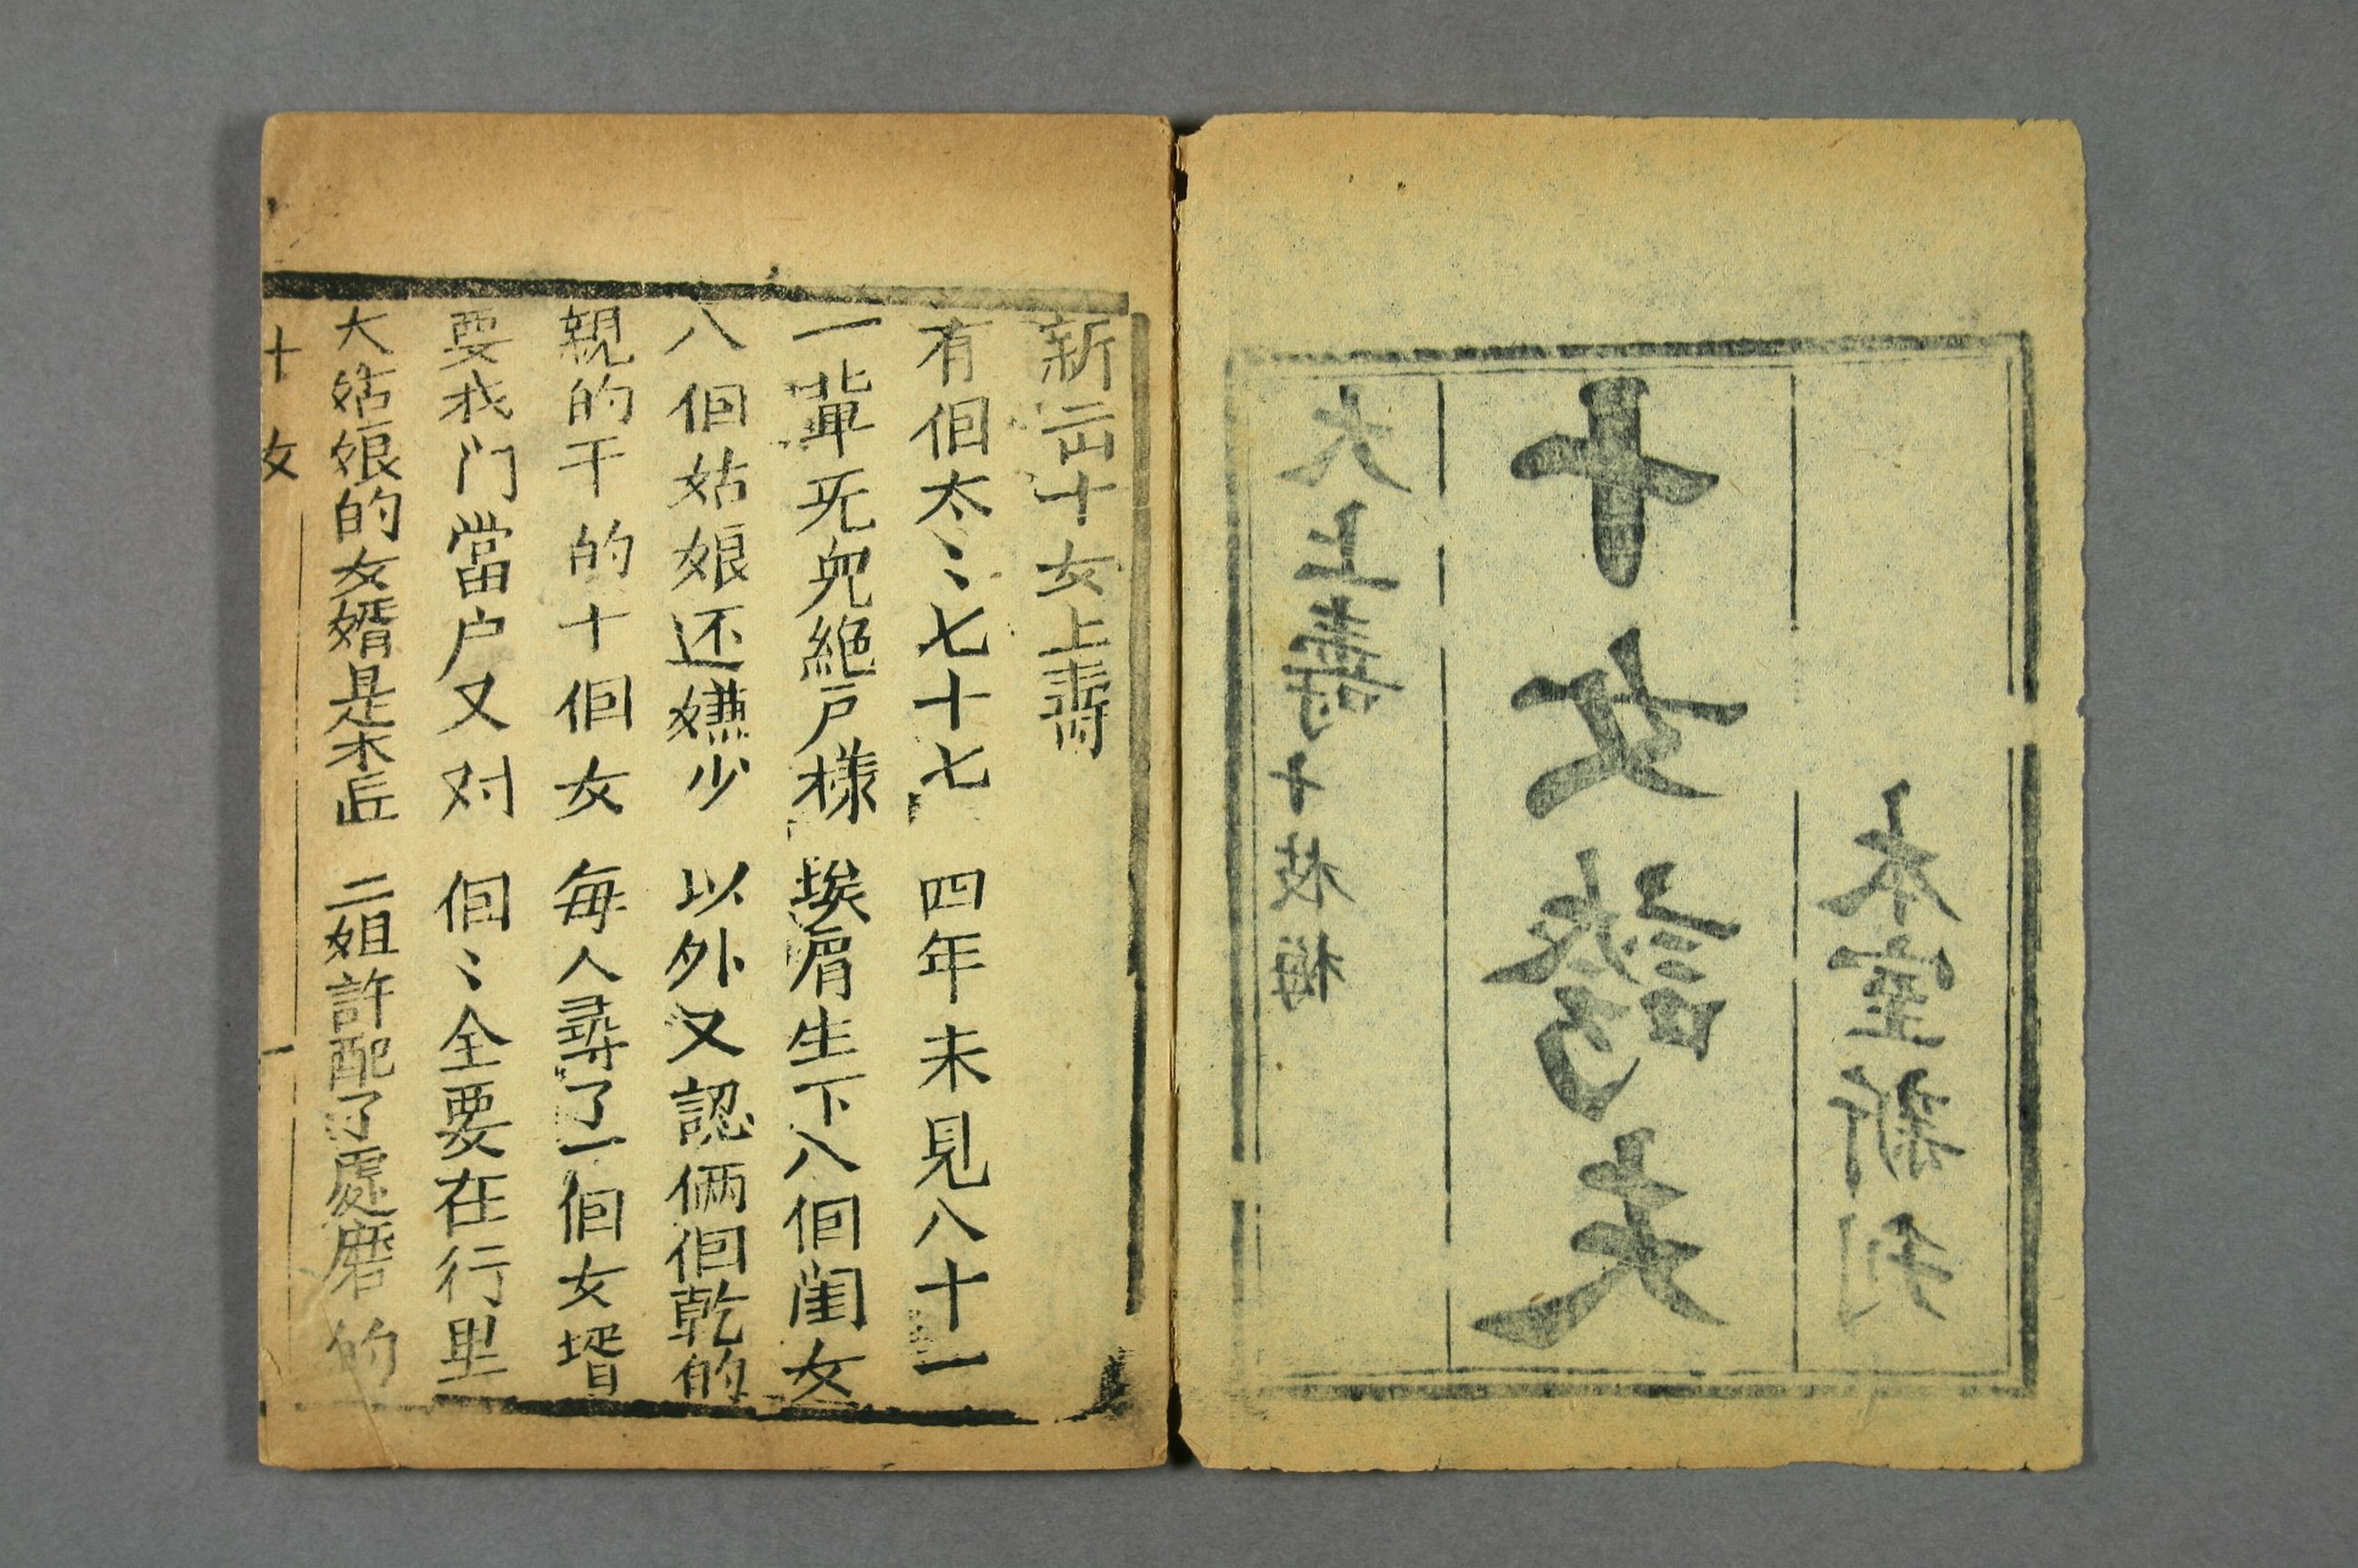 大上壽十枝梅
十女誇夫
本堂新刊
新出十女上壽
有佪太〻七十七 四年未見八十一
一輩死兒絕户樣 埃肩生下八佪閨女
八佪姑娘还嫌少 以外又認倆佪乾的
親的干的十佪女 每人尋了一佪女壻
要找门當户又对 佪〻全要在行里
大姑娘的女婿是木匠 二姐許配了處磨的
十女 一